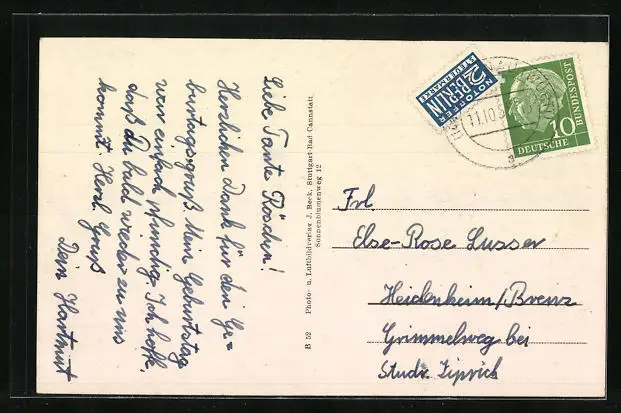 Liebe Tante Röschen!
Herzlichen Dank für den Ge=
burtagsgruß. Mein Geburtstag
war einfach pfundig. Ich hoffe,
daß Du bald wieder zu uns
kommst. Herzl. Gruß
Dein Hartmut
B 52 Photo- u. Luftbildverlag J. Beck, Stuttgart-Bad Cannstatt
Sonnenblumenweg 12
NOTOPFER
2 BERLIN
STEUERMARKE
11.10.5
10
DEUTSCHE
BUNDESPOST
Frl.
Else-Rose Lusser
Heidenheim/Brenz
Grimmelweg bei
Studr.